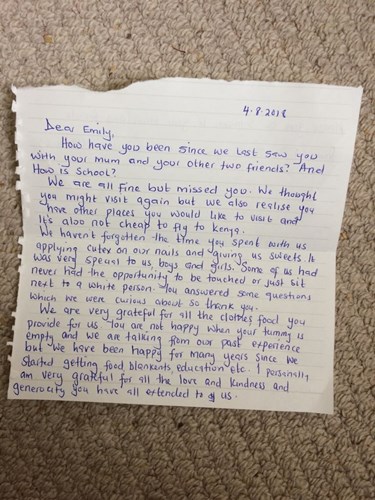 4.8.2018
Dear Emily,
How have you been since we last saw you
with your mum and your other two friends? And
How is School?
We are all fine but missed you. We thought
you might visit again but we also realise you
have other places you would like to visit and
It's also not cheap to fly to Kenya.
We haven't forgotten the time you spent with us
applying cutex on our nails and giving us sweets. It
was very special to us boys and girls. Some of us had
never had the opportunity to be touched or just sit
next to a white person. You answered some questions
which we were curious about so thank you.
We are very grateful for all the clothes food you
provide for us. You are not happy when your tummy is
empty and we are talking from our past experience
but we have been happy for many years since we
started getting food blankets, education etc. I personally
am very grateful for all the love and kindness and
generocity you have all extended to us.